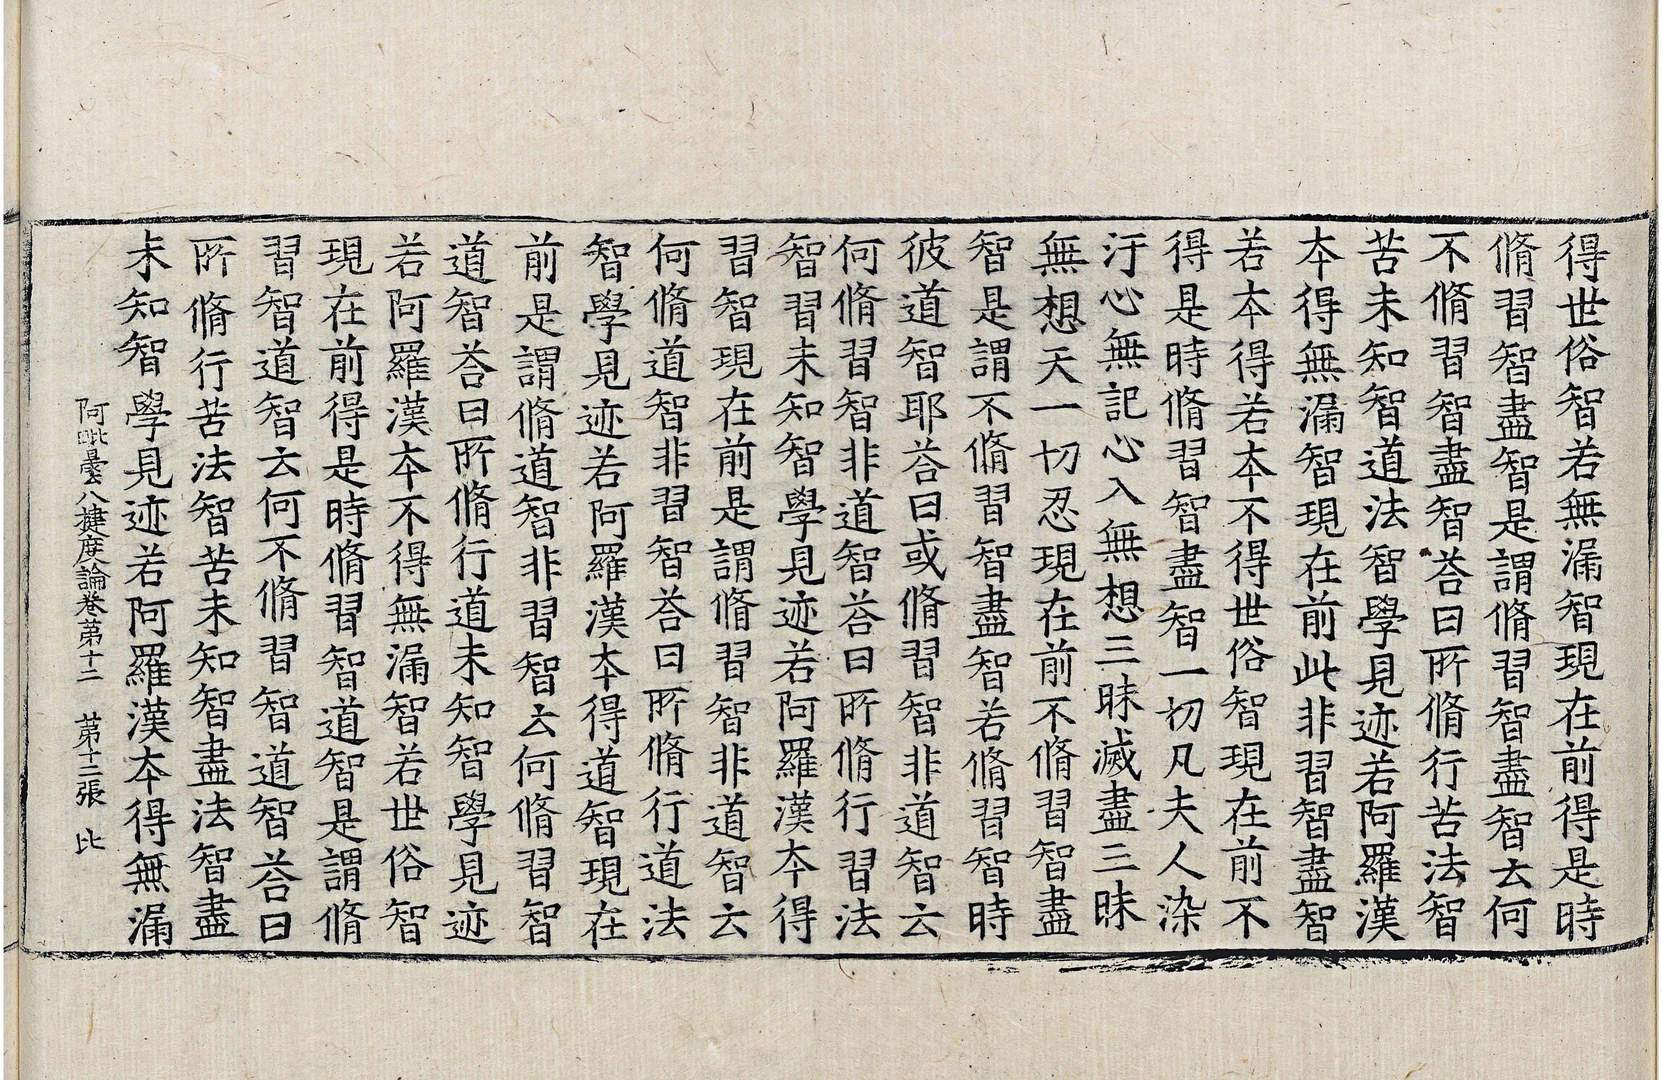 得世俗智若無漏智現在前得是時
脩習智盡智是謂脩習智盡智云何
不脩習智盡智荅曰所脩行苦法智
苦未知智道法智學見迹若阿羅漢
本得無漏智現在前此非習智盡智
若本得若本不得世俗智現在前不
得是時脩習智盡智一切凡夫人染
汙心無記心入無想三昧滅盡三昧
無想天一切忍現在前不脩習智盡
智是謂不脩習智盡智若脩習智時
彼道智耶荅曰或脩習智非道智云
何脩習智非道智荅曰所脩行習法
智習未知智學見迹若阿羅漢本得
習智現在前是謂脩習智非道智云
何脩道智非習智荅曰所脩行道法
智學見迹若阿羅漢本得道智現在
前是謂脩道智非習智云何脩習智
道智荅曰所脩行道未知智學見迹
若阿羅漢本不得無漏智若世俗智
現在前得是時脩習智道智是謂脩
習智道智云何不脩習智道智荅曰
所脩行苦法智苦未知智盡法智盡
未知智學見迹若阿羅漢本得無漏
阿毗曇八揵度論卷第十二 第十二張 比